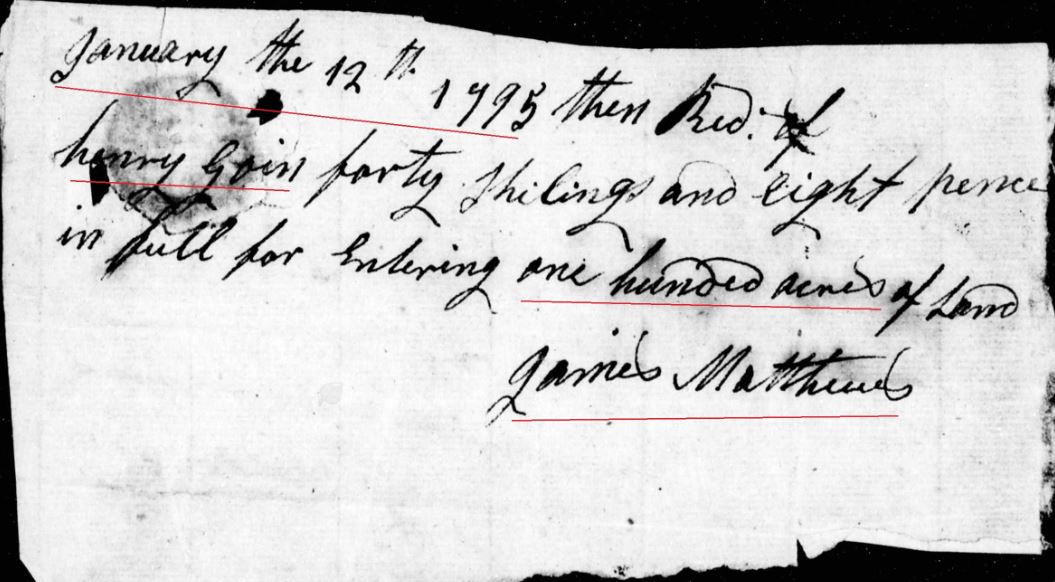 January the 12th 1795 then Recd. of
henry Goin forty Shilings and Eight pence
in full for Entering one hundred acres of Land
James Matthews